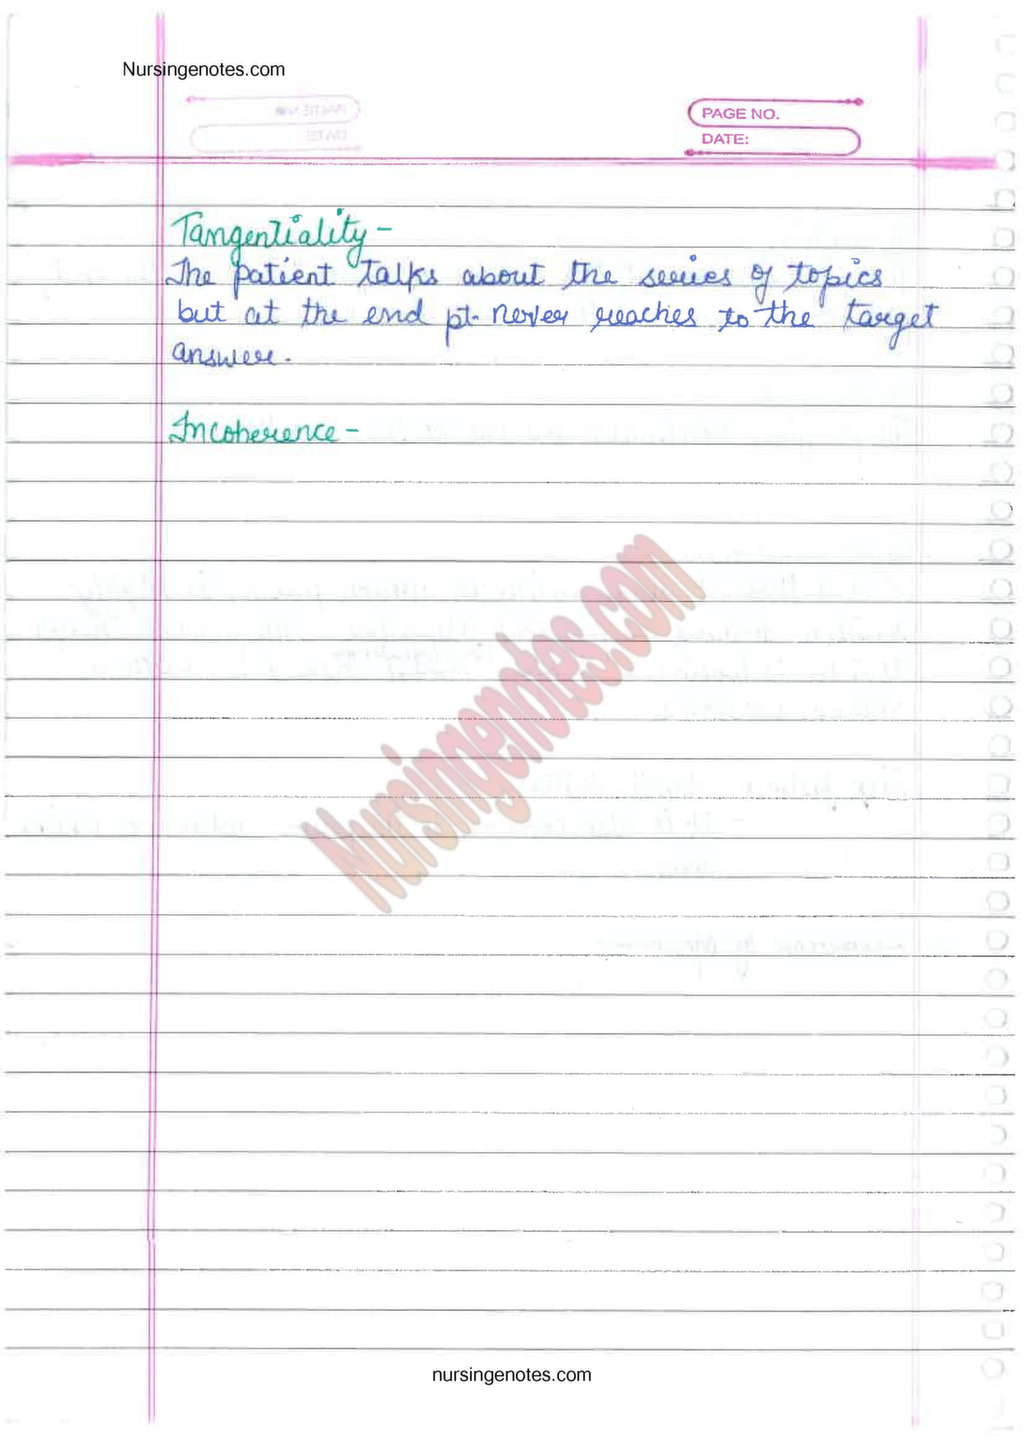 Nursingenotes.com
PAGE NO.
DATE:
Tangentiality -
The patient talks about the series of topics
but at the end pt. never reaches to the target
answer.
Incoherence -
Nursingenotes.com
nursingenotes.com